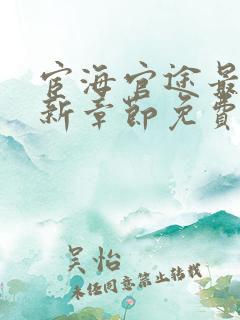 宦海官途最
新章节免费
吴怡
未经同意禁止转载